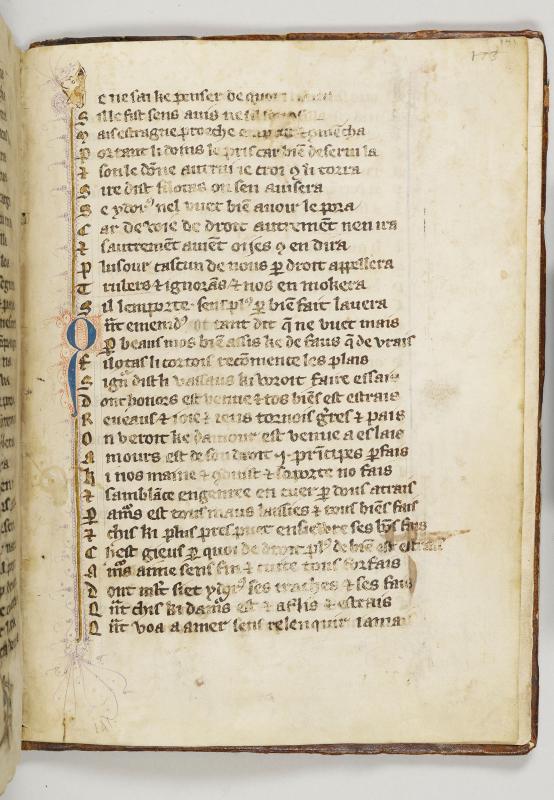 173
e ne sai ke penser de quoi
S ille fist sens auis ne
M ais estragne ꝑroche
P or tant li doins le pris car biẽ deserui la
⁊ son le dõne autrui ie croi
S ire dist filotas on sen auisera
S e ydorꝰ nel vuet biẽ auoir le pora
C ar de voie de droit autremẽt nen ira
⁊ sautremẽt auiẽt oi ies ꝯ en dira
P lusour cascun de nous ꝑ droit appellera
T rulers ⁊ ignorãs ⁊ nos en mokera
S il lemporte sens plꝰ ꝑ biẽ fait lauera
Q ñt emenidꝰ ot tant dit q̃ ne vuet mais
P beaus mos biẽ assis ke de faus q̃ de vrais
F ilotas li cortois recõmence les plais
S ign̾ dist li vassaus ki voroit faire essais
D ont honors est venue ⁊ tos biẽs est estrais
R eueaus ⁊ ioie ⁊ ieus tornois gr̃res ⁊ pais
O n veroit ke damour est venue a eslais
A mours est de son droit .i. prĩcipes ꝑfais
K i nos maine ⁊ ꝯduist ⁊ soporte no fais
⁊ samblãce engenree en cuer ꝑ dous atrais
P am̃s est tous maus laissies ⁊ tous biẽs fais
⁊ chis ki plus pres puet ensieure ses bõs fais
C hest gieus ꝑ quoi de droit plꝰ de biẽ est estrais
A m̃s aime sens fin ⁊ cuite tous forfais
D ont mlt̃ siet ydorꝰ ses traches ⁊ ses fais
Q ñt chis ki dam̃s est ⁊ aflis ⁊ estrais
Q ñt voa a amer sens relenquir iamais